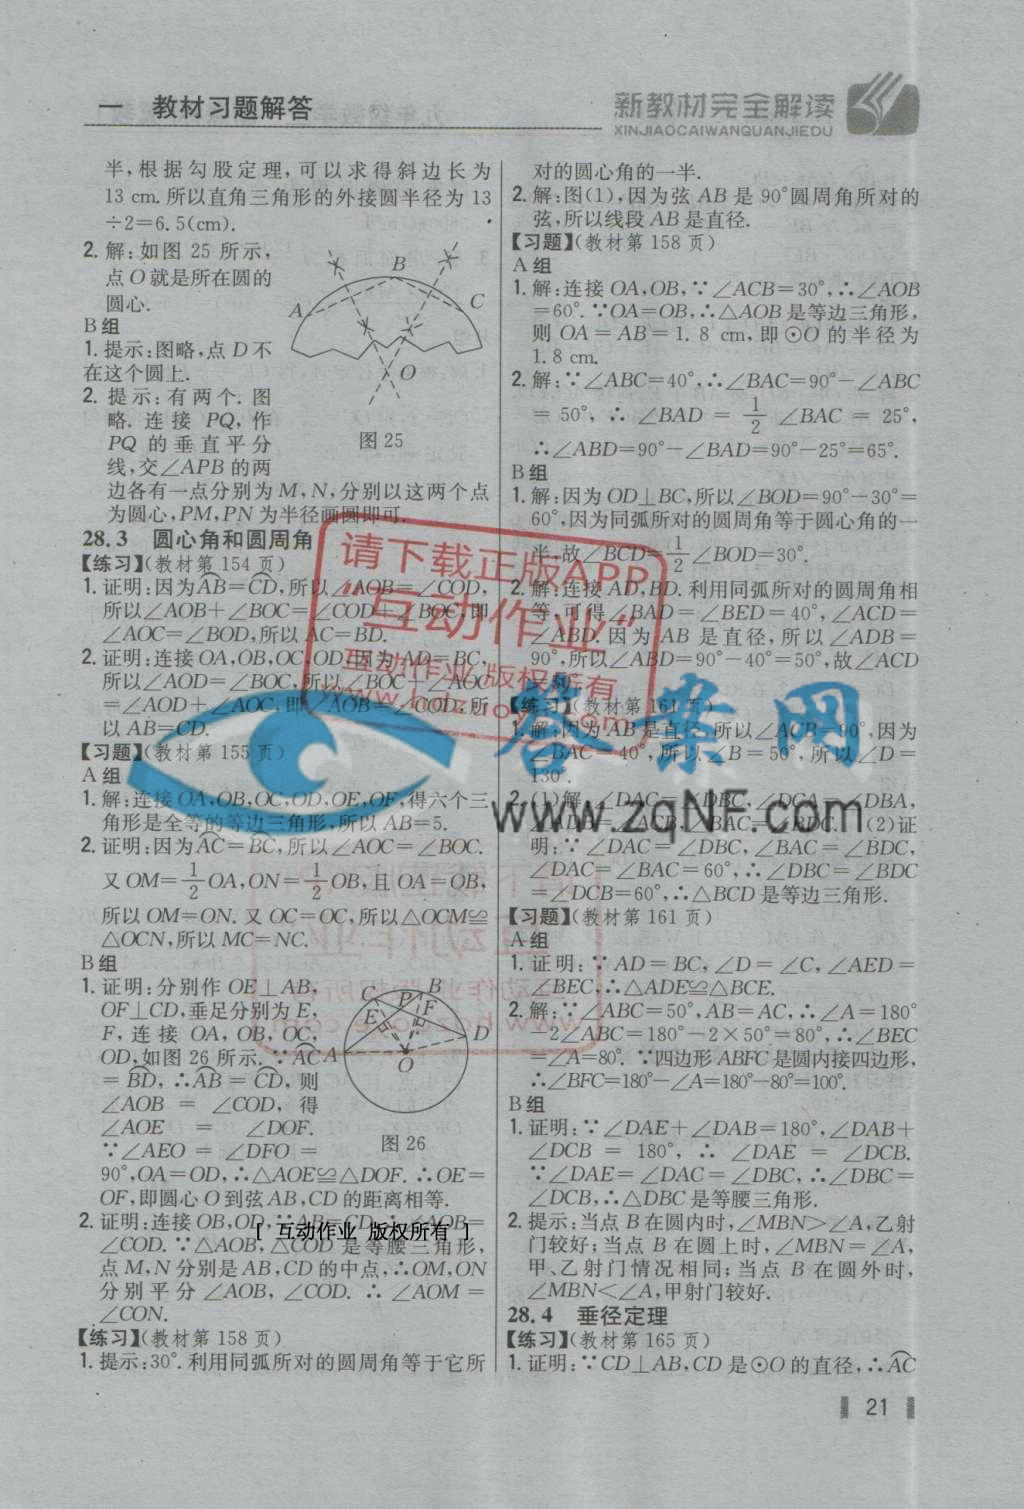 一 教材习题解答
新教材完全解读
XINJIAOCAIWANQUANJIEDU
半,根据勾股定理,可以求得斜边长为
13 cm.所以直角三角形的外接圆半径为 13
÷2=6.5(cm).
2. 解:如图 25 所示,
点 O 就是所在圆的
圆心.
B组
1. 提示:图略,点 D 不
在这个圆上.
2. 提示:有两个. 图
略. 连接 PQ,作
PQ 的垂直平分
线,交∠APB 的两
边各有一点分别为 M,N,分别以这两个点
为圆心,PM,PN 为半径画圆即可.
A
B
C
O
图 25
28.3 圆心角和圆周角
【练习】(教材第 154 页)
1. 证明:因为AB=CD,所以∠AOB=∠COD,
所以∠AOB+∠BOC=∠COD+∠BOC,即
∠AOC=∠BOD,所以 AC=BD.
2. 证明:连接 OA,OB,OC,OD.因为 AD=BC,
所以∠AOD=∠BOC,所以∠BOC+∠AOC
=∠AOD+∠AOC,即∠AOB=∠COD,所
以 AB=CD.
【习题】(教材第 155 页)
A组
1. 解:连接 OA,OB,OC,OD,OE,OF,得六个三
角形是全等的等边三角形,所以 AB=5.
2. 证明:因为AC=BC,所以∠AOC=∠BOC.
又 OM=1/2 OA,ON=1/2 OB,且 OA=OB,
所以 OM=ON. 又 OC=OC,所以△OCM≌
△OCN,所以 MC=NC.
B组
1. 证明:分别作 OE⊥AB,
OF⊥CD,垂足分别为 E,
F,连接 OA,OB,OC,
OD,如图 26 所示.∵AC
=BD,∴AB=CD,则
∠AOB = ∠COD,得
∠AOE = ∠DOF.
∵∠AEO = ∠DFO =
90°,OA=OD,∴△AOE≌△DOF. ∴OE=
OF,即圆心 O 到弦 AB,CD 的距离相等.
C
P
B
E
F
D
A
O
图 26
2. 证明:连接 OB,OD,∵AB=CD,∴∠AOB=
∠COD. ∵△AOB,△COD 是等腰三角形,
点 M,N 分别是 AB,CD 的中点,∴OM,ON
分别平分∠AOB,∠COD. ∴∠AOM=
∠CON.
【练习】(教材第 158 页)
1. 提示:30°. 利用同弧所对的圆周角等于它所
对的圆心角的一半.
2. 解:图(1),因为弦 AB 是 90°圆周角所对的
弦,所以线段 AB 是直径.
【习题】(教材第 158 页)
A组
1. 解:连接 OA,OB,∵∠ACB=30°,∴∠AOB
=60°. ∵OA=OB,∴△AOB 是等边三角形,
则 OA=AB=1.8 cm,即⊙O 的半径为
1.8 cm.
2. 解:∵∠ABC=40°,∴∠BAC=90°-∠ABC
=50°,∴∠BAD=1/2 ∠BAC=25°,
∴∠ABD=90°-∠BAD=90°-25°=65°.
B组
1. 解:因为 OD⊥BC,所以∠BOD=90°-30°=
60°,因为同弧所对的圆周角等于圆心角的一
半,故∠BCD=1/2 ∠BOD=30°.
2. 解:连接 AD,BD. 利用同弧所对的圆周角相
等,可得∠BAD=∠BED=40°,∠ACD=
∠ABD.因为 AB 是直径,所以∠ADB=
90°,所以∠ABD=90°-40°=50°,故∠ACD
=50°.
【练习】(教材第 161 页)
1. 解:因为 AB 是直径,所以∠ACB=90°,因为
∠BAC=40°,所以∠B=50°,所以∠D=
130°.
2. (1)解:∠DAC=∠DBC,∠DCA=∠DBA,
∠ADB=∠ACB,∠BAC=∠BDC. (2)证
明:∵∠DAC=∠DBC,∠BAC=∠BDC,
∠DAC=∠BAC=60°,∴∠DBC=∠BDC
=∠DCB=60°,∴△BCD 是等边三角形.
【习题】(教材第 161 页)
A组
1. 证明:∵AD=BC,∠D=∠C,∠AED=
∠BEC,∴△ADE≌△BCE.
2. 解:∵∠ABC=50°,AB=AC,∴∠A=180°
-2∠ABC=180°-2×50°=80°,∴∠BEC
=∠A=80°. ∵四边形 ABFC 是圆内接四边形,
∴∠BFC=180°-∠A=180°-80°=100°.
B组
1. 证明:∵∠DAE+∠DAB=180°,∠DAB+
∠DCB=180°,∴∠DAE=∠DCB.
∵∠DAE=∠DAC=∠DBC,∴∠DBC=
∠DCB,∴△DBC 是等腰三角形.
2. 提示:当点 B 在圆内时,∠MBN>∠A,乙射
门较好;当点 B 在圆上时,∠MBN=∠A,
甲、乙射门情况相同;当点 B 在圆外时,
∠MBN<∠A,甲射门较好.
28.4 垂径定理
【练习】(教材第 165 页)
1. 证明:∵CD⊥AB,CD 是⊙O 的直径,∴AC
21
请下载正版APP
“互动作业”
互动作业 版权所有
答案网
www.zqNF.com
[ 互动作业 版权所有 ]